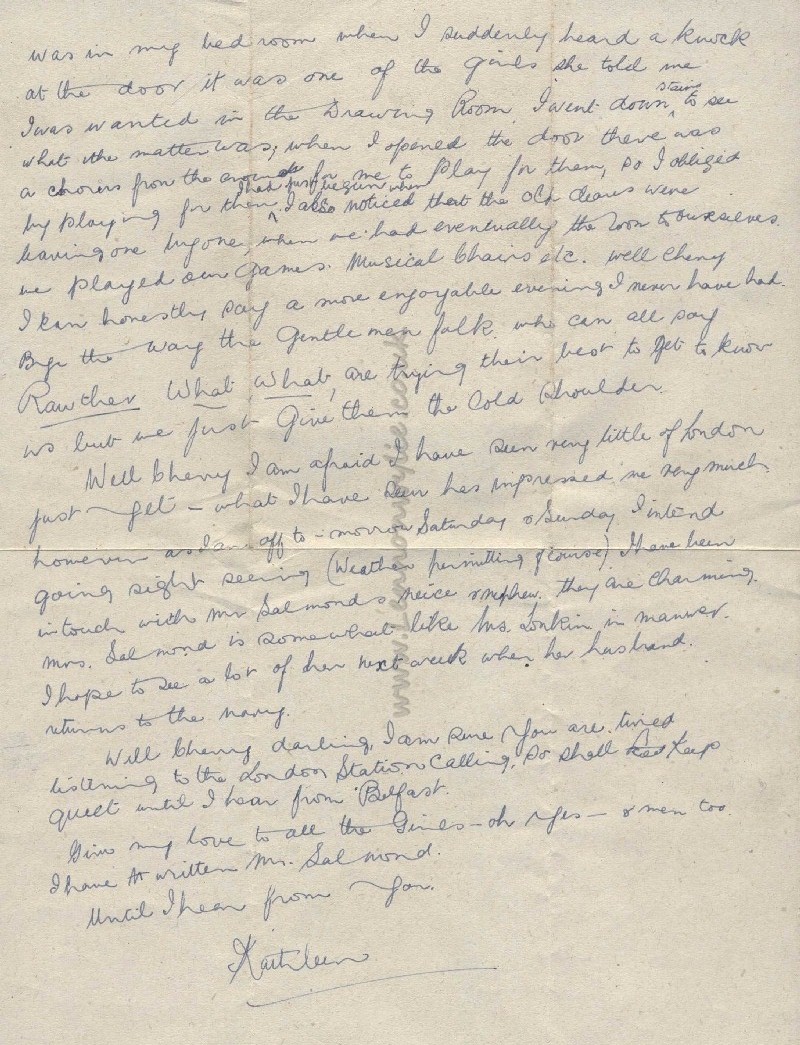 was in my bed room when I suddenly heard a knock
at the door it was one of the girls she told me
I was wanted in the Drawing Room, I went down stairs to see
what the matter was; when I opened the door there was
a chorus from the crowd for me to Play for them, so I obliged
by playing for them I had just begun when I also noticed that the old dears were
leaving one by one, when we had eventually the room to ourselves
we played our Games. Musical Chairs etc. well Cherry
I can honestly say a more enjoyable evening I never have had.
By the way the Gentlemen folk who can all say
Rawther What What, are trying their best to get to know
us but we just Give them the Cold Shoulder.
Well Cherry I am afraid I have seen very little of London
just yet - what I have seen has impressed me very much.
however as I am off to-morrow Saturday & Sunday I intend
going sight seeing (Weather permitting of course) I have been
in touch with Mr Salmonds neice & nephew. they are Charming.
Mrs. Salmond is somewhat like Mrs. in manner.
I hope to see a lot of her next week when her husband
returns to the navy.
Well Cherry darling, I am sure you are tired
listening to the London Station Calling, so shall Keep
quiet until I hear from Belfast.
Give my love to all the Girls - oh yes - & men too
I have written Mr. Salmond.
Until I hear from you.
Kathleen